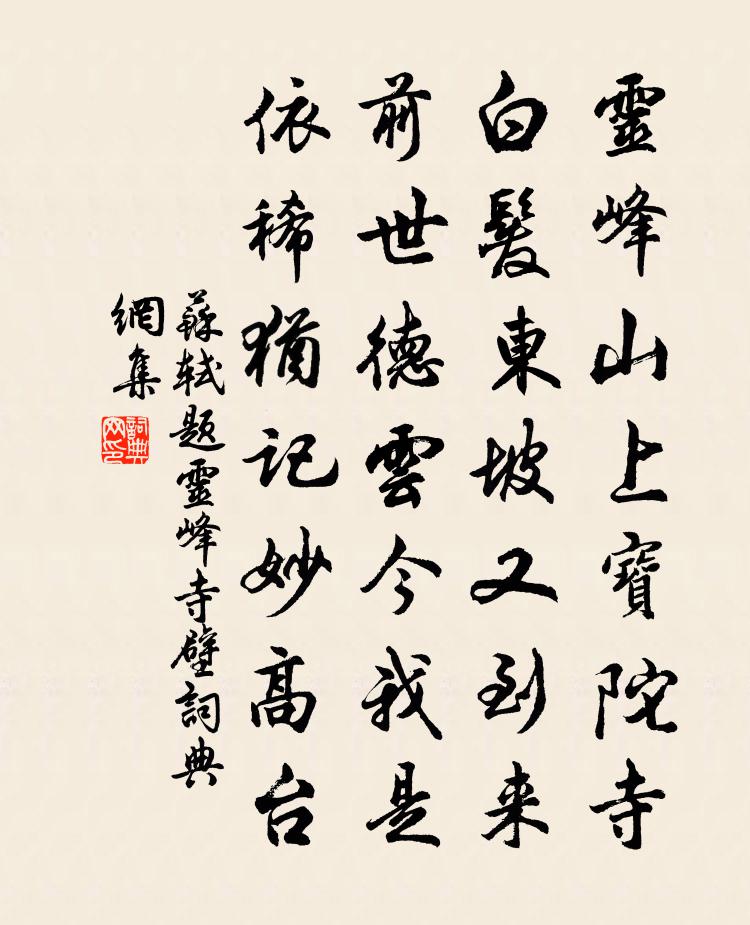 靈峰山上寶陀寺
白髮東坡又到来
前世德雲今我是
依稀猶記妙高台
蘇軾题靈峰寺壁詞典
網集
詞典
网印